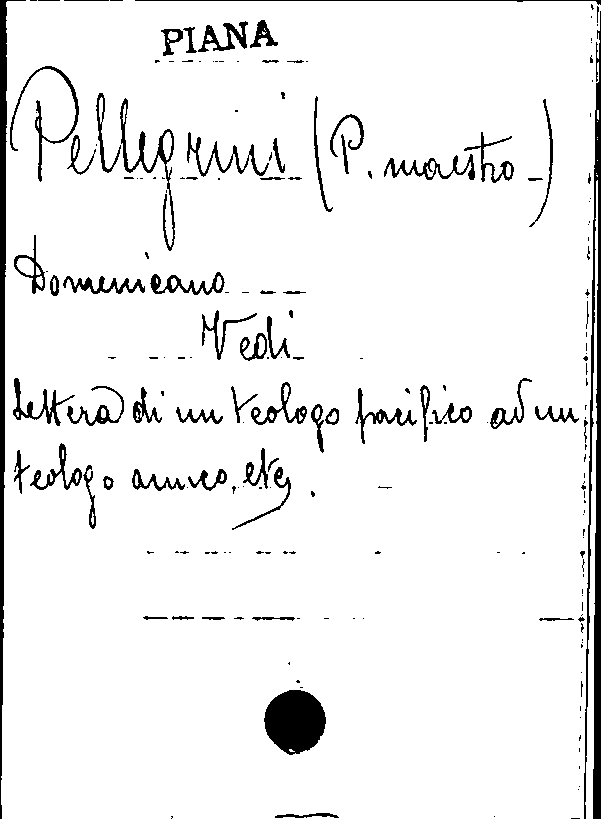 PIANA
Pellegrini (P. maestro)
Domenicano
Vedi
Lettera di un teologo pacifico ad un
teologo amico, etc.